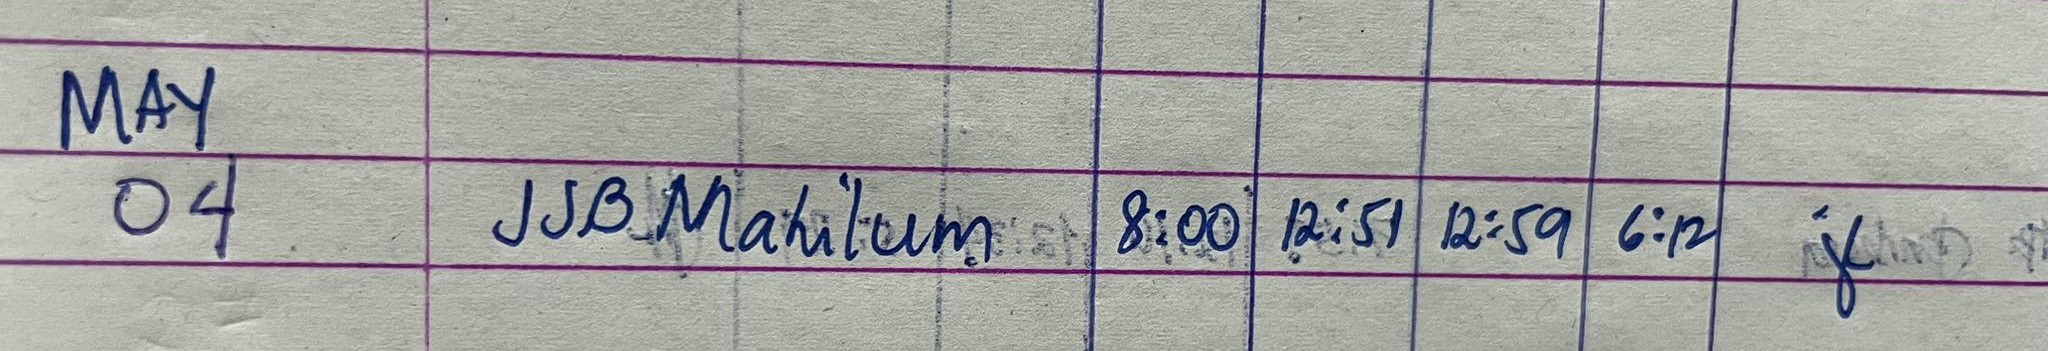 MAY
04 JJB Mahilum 8:00 12:51 12:59 6:12